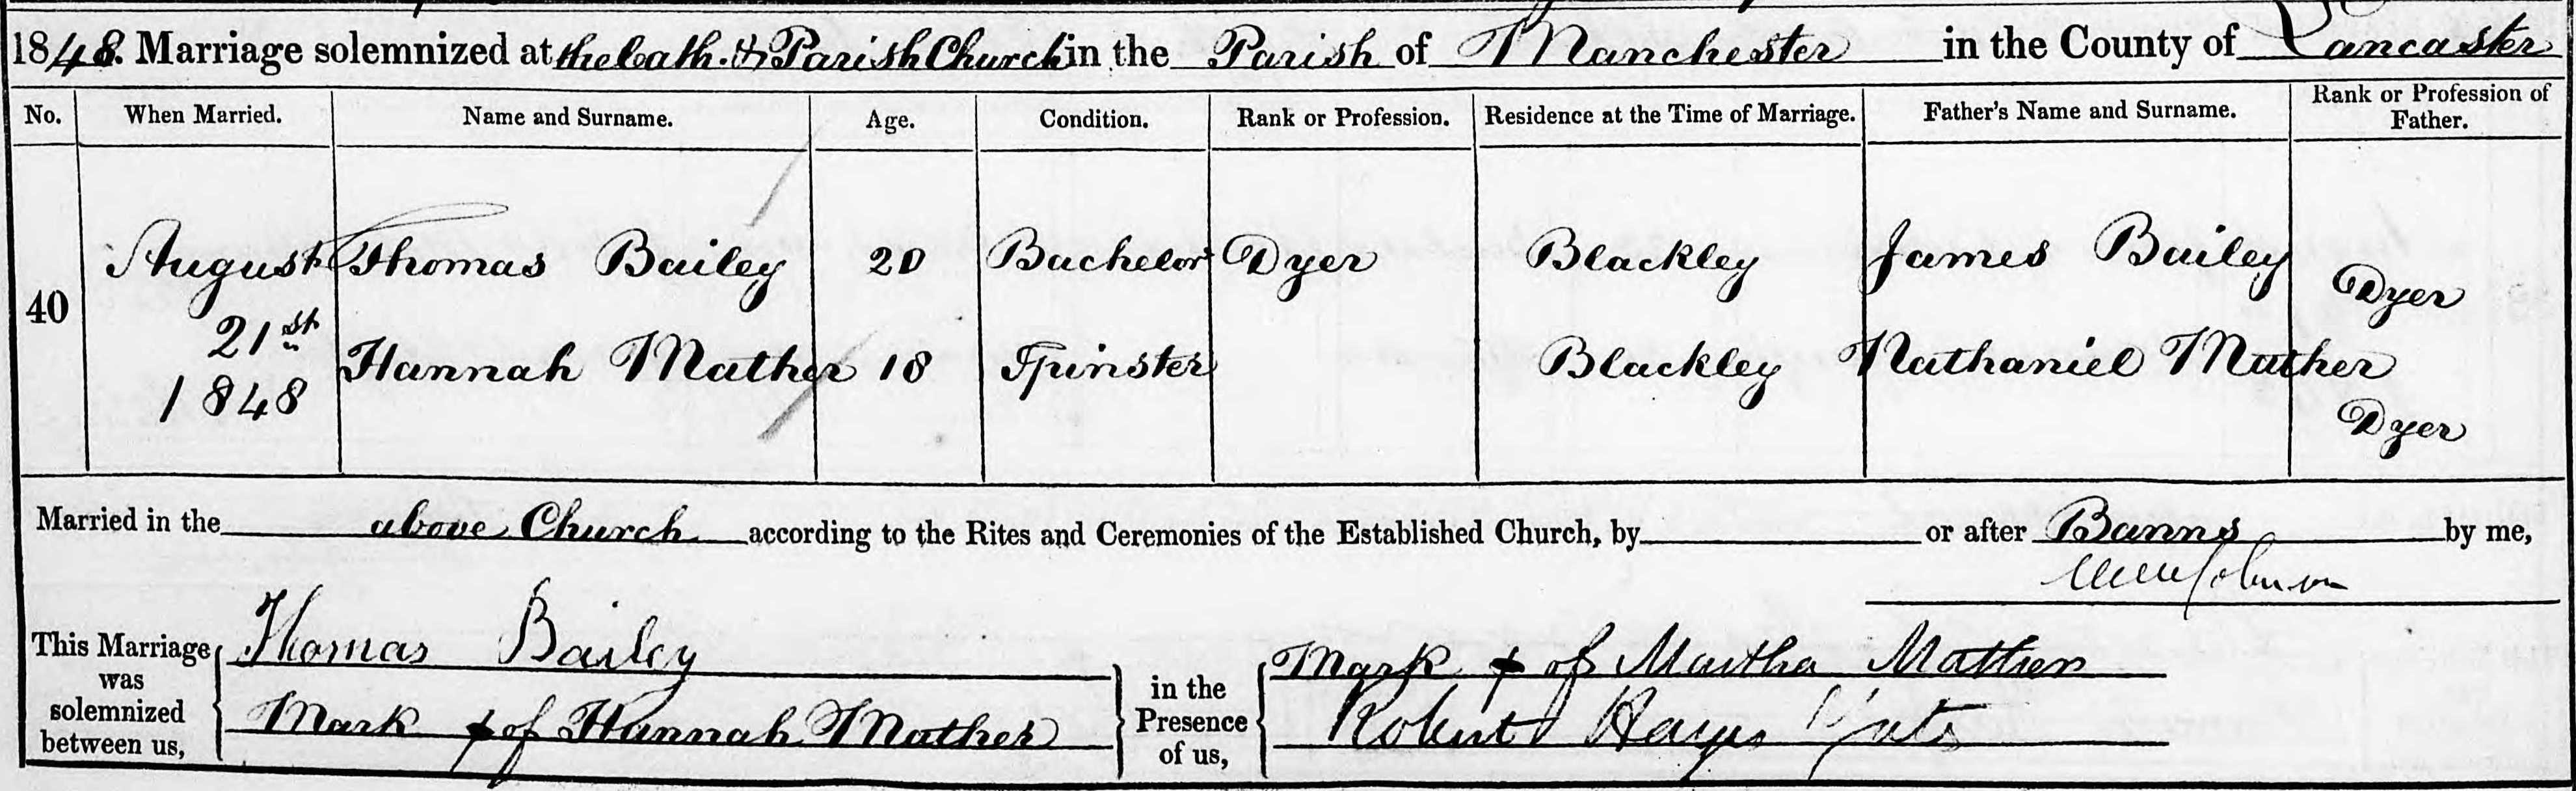 1848. Marriage solemnized at the Cath. & Parish Church in the Parish of Manchester in the County of Lancaster
No. When Married. Name and Surname. Age. Condition. Rank or Profession. Residence at the Time of Marriage. Father's Name and Surname. Rank or Profession of Father.
40 August 21st 1848
Thomas Bailey 20 Bachelor Dyer Blackley James Bailey Dyer
Hannah Mather 18 Spinster Blackley Nathaniel Mather Dyer
Married in the above Church according to the Rites and Ceremonies of the Established Church, by or after Banns by me,
Johnson
This Marriage was solemnized between us,
Thomas Bailey
Mark + of Hannah Mather
in the Presence of us,
Mark + of Martha Mather
Robert Hayes Yates